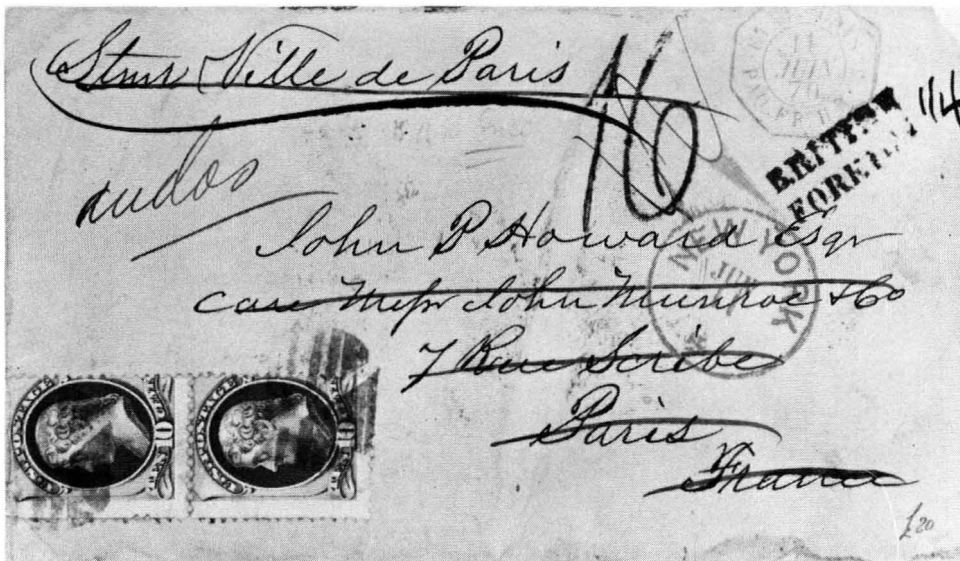 Stmr Ville de Paris
16
11
JUIN
70
BRITISH
FOREIGN
1/4
John P Howard Esqr
care Messr John Munroe & Co
7 Rue Scribe
Paris
France
NEW YORK
JUN
U.S. POSTAGE
10
U.S. POSTAGE
10
£20